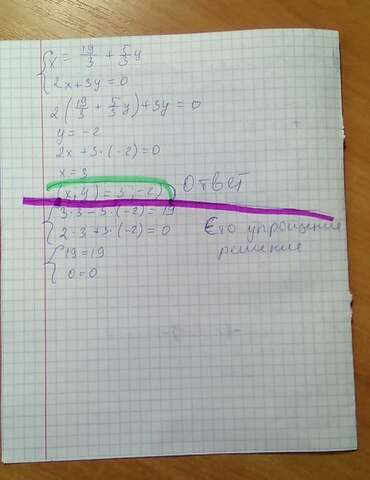 x = 19/3 + 5/3 y
2x+3y=0
2(19/3 + 5/3 y)+3y=0
y=-2
2x+3·(-2)=0
x=3
(x,y)=3,-2) Ответ
3·3-5·(-2)=19
2·3+3·(-2)=0
Єто упрощение
решение
19=19
0=0